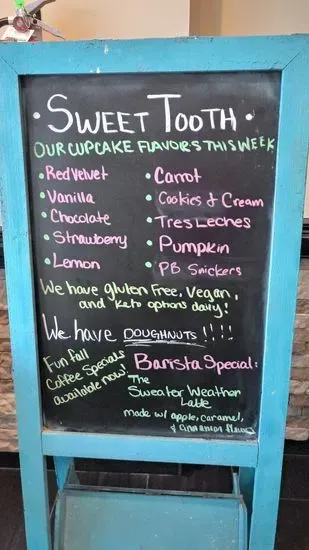 · SWEET TOOTH ·
OUR CUPCAKE FLAVORS THIS WEEK
• Red Velvet
• Vanilla
• Chocolate
• Strawberry
• Lemon
• Carrot
• Cookies & Cream
• Tres Leches
• Pumpkin
• PB Snickers
We have gluten Free, Vegan,
and keto options daily!
We have DOUGHNUTS !!!!
Fun Fall
Coffee Specials
available now!
Barista Special:
The
Sweater Weather
Latte
made w/ apple, caramel,
& cinnamon flavors